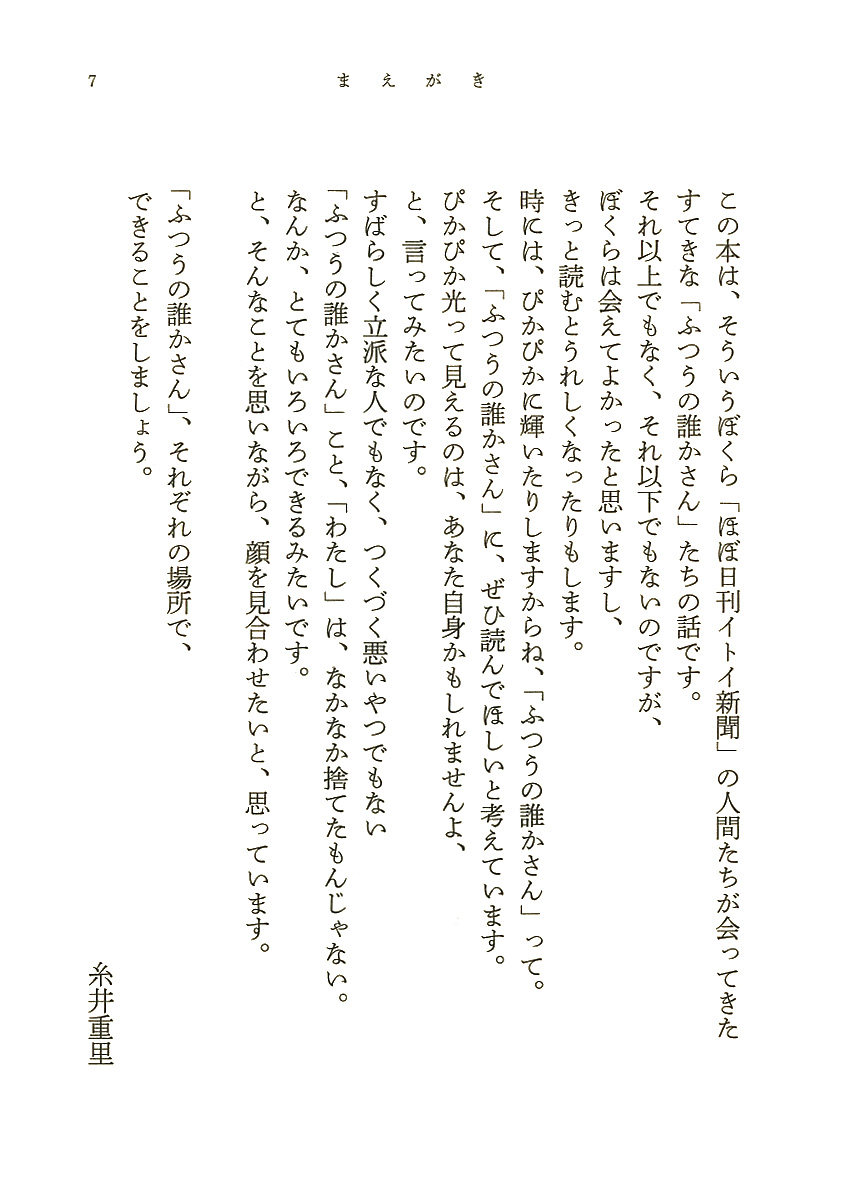 7
まえがき
この本は、そういうぼくら「ほぼ日刊イトイ新聞」の人間たちが会ってきた
すてきな「ふつうの誰かさん」たちの話です。
それ以上でもなく、それ以下でもないのですが、
ぼくらは会えてよかったと思いますし、
きっと読むとうれしくなったりもします。
時には、ぴかぴかに輝いたりしますからね、「ふつうの誰かさん」って。
そして、「ふつうの誰かさん」に、ぜひ読んでほしいと考えています。
ぴかぴか光って見えるのは、あなた自身かもしれませんよ、
と、言ってみたいのです。
すばらしく立派な人でもなく、つくづく悪いやつでもない
「ふつうの誰かさん」こと、「わたし」は、なかなか捨てたもんじゃない。
なんか、とてもいろいろできるみたいです。
と、そんなことを思いながら、顔を見合わせたいと、思っています。
「ふつうの誰かさん」、それぞれの場所で、
できることをしましょう。
糸井重里